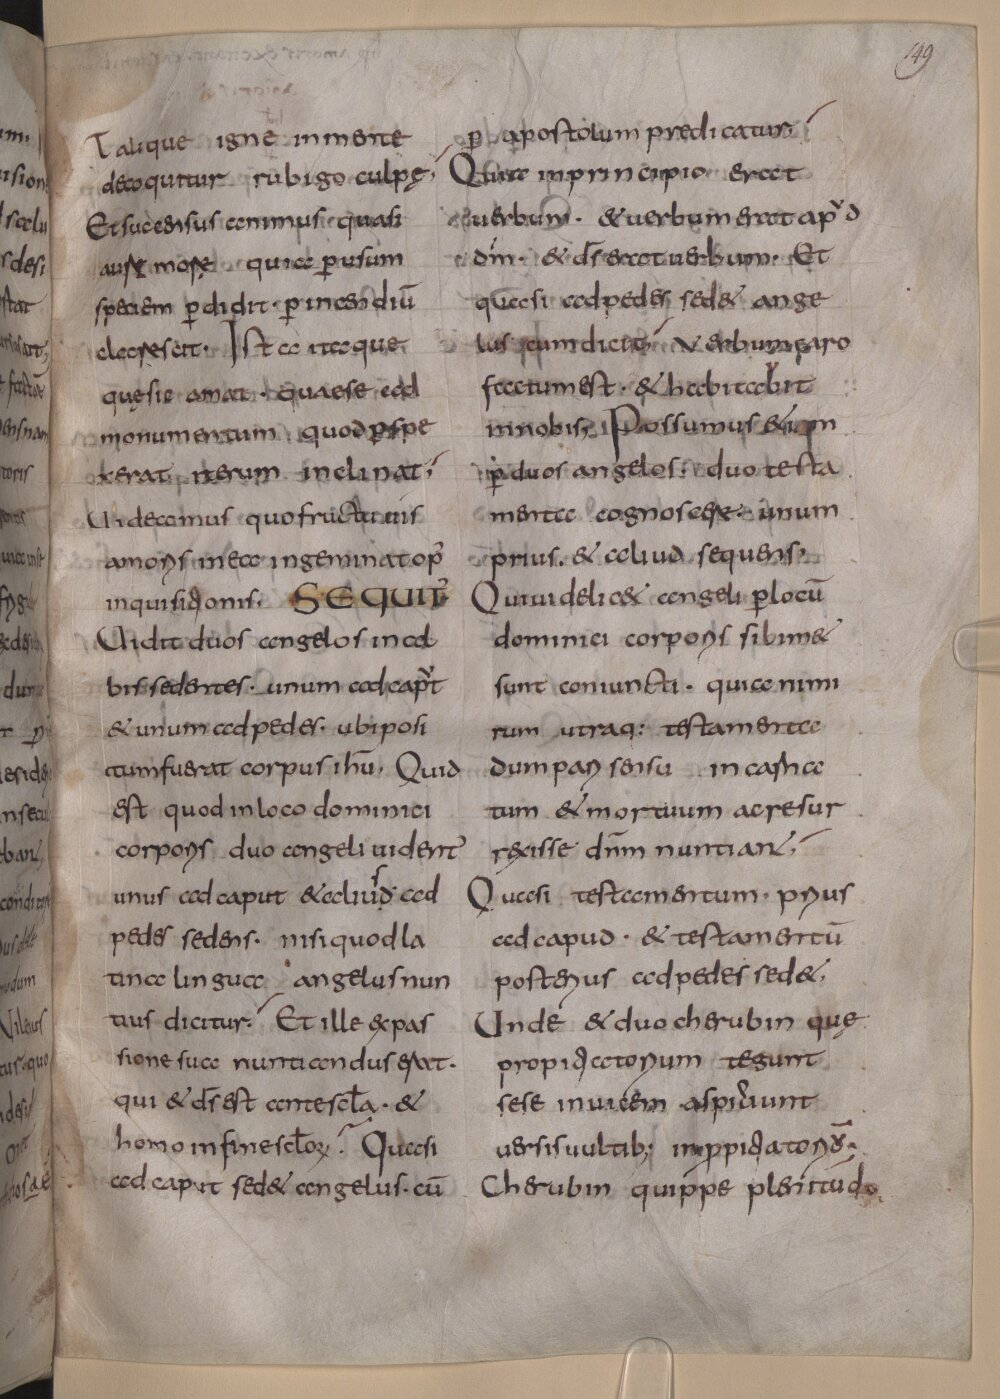 149
Talique igne in mente
decoquitur rubigo culpę;
Et succensus animus quasi
aurum more quia p̱ usum
speciem p̱didit · p̱ incendiū
clarescit · Ista itaque
quę sic amat · quae se ad
monumentum quod p̱spe
xerat iterum inclinat;
Uideamus quo fructu uis
amoris in ea ingeminat op̄
inquisitionis · SEQUIT̄
Uidit duos angelos in al
bis sedentes · unum ad cap̄t
& unum ad pedes · ubi posi
tum fuerat corpus ihū, Quid
est quod in loco dominici
corporis duo angeli uident̄
unus ad caput & alius ad
pedes sedens · nisi quod la
tina lingua angelus nun
tius dicitur; Et ille ex pas
sione sua nuntiandus erat ·
qui & d̄s est ante sc̄la · &
homo in fine sc̄lorꝝ; Quasi
ad caput sed& angelus · cū
p̱ apostolum predicatur;
Quia in principio erat
uerbum · & uerbum erat ap̄d
dm̄ · & d̄s erat uerbum · Et
quasi ad pedes sed& ange
lus cum dicit; Uerbum caro
factum est · & habitabit
in nobis; Possumus &iam
p̱ duos angelos · duo testa
menta cognoscere · unum
prius · & aliud sequens;
Qui uidelic& angeli p̱ locū
dominici corporis sibim&
sunt coniuncti · quia nimi
rum utraq: testamenta
dum pari sensu incarna
tum & mortuum ac resur
rexisse dn̄m nuntiant;
Quasi testamentum · prius
ad capud · & testamentū
posterius ad pedes sed&;
Unde & duo cherubin quę
propitiatorium tegunt
sese inuicem aspiciunt
uersis uultib; in propitiatoriū ·
Cherubin quippe plenitudo